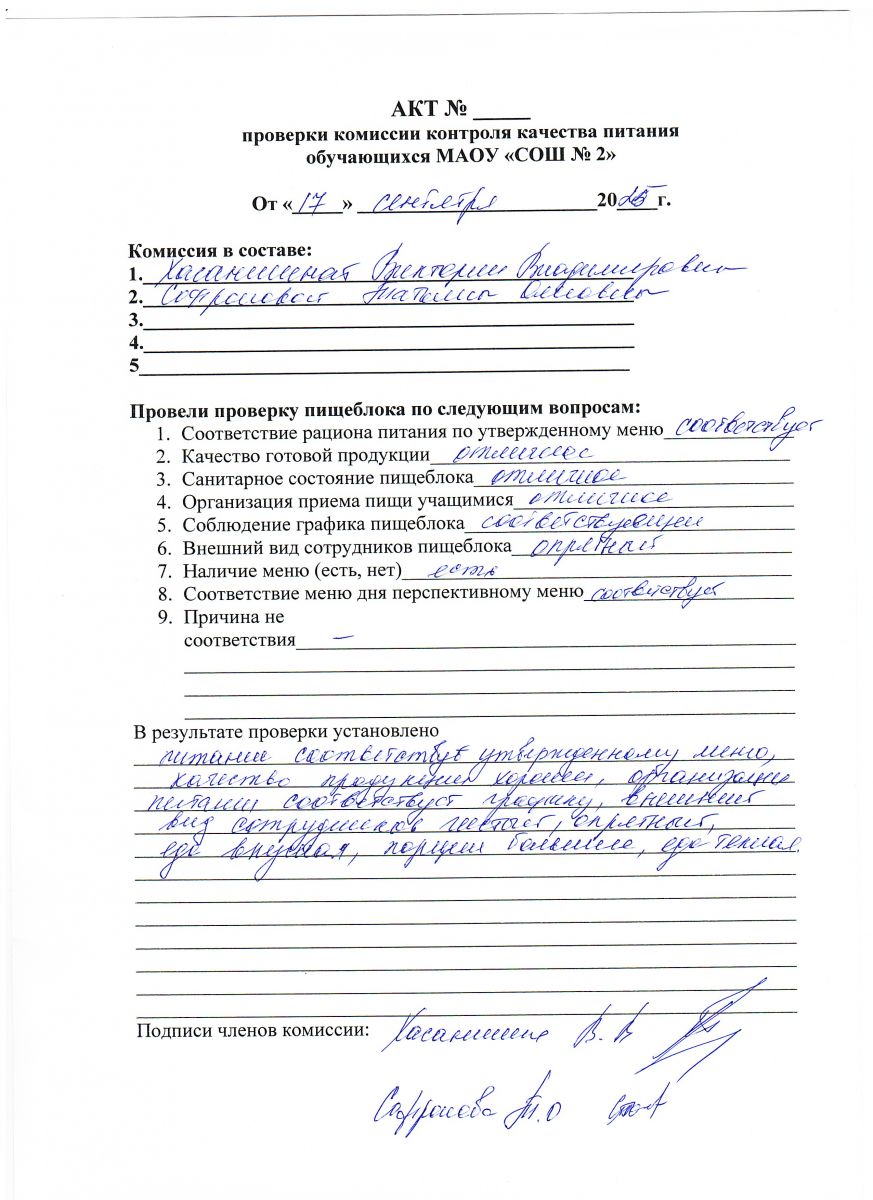 АКТ № _____
проверки комиссии контроля качества питания
обучающихся МАОУ «СОШ № 2»
От «17» сентября 2025 г.
Комиссия в составе:
1. Виктории Владимировны
2. Сафроновой Татьяны
3.
4.
5
Провели проверку пищеблока по следующим вопросам:
1. Соответствие рациона питания по утвержденному меню соответствует
2. Качество готовой продукции отличное
3. Санитарное состояние пищеблока отличное
4. Организация приема пищи учащимися отличное
5. Соблюдение графика пищеблока
6. Внешний вид сотрудников пищеблока опрятный
7. Наличие меню (есть, нет) есть
8. Соответствие меню дня перспективному меню соответствует
9. Причина не
соответствия –
В результате проверки установлено
питание соответствует утвержденному меню,
качество продукции хорошее, организация
питания соответствует графику, внешний
вид сотрудников чистый, опрятный,
еда вкусная, порции большие, еда теплая.
Подписи членов комиссии: В. В
Сафронова Т.О